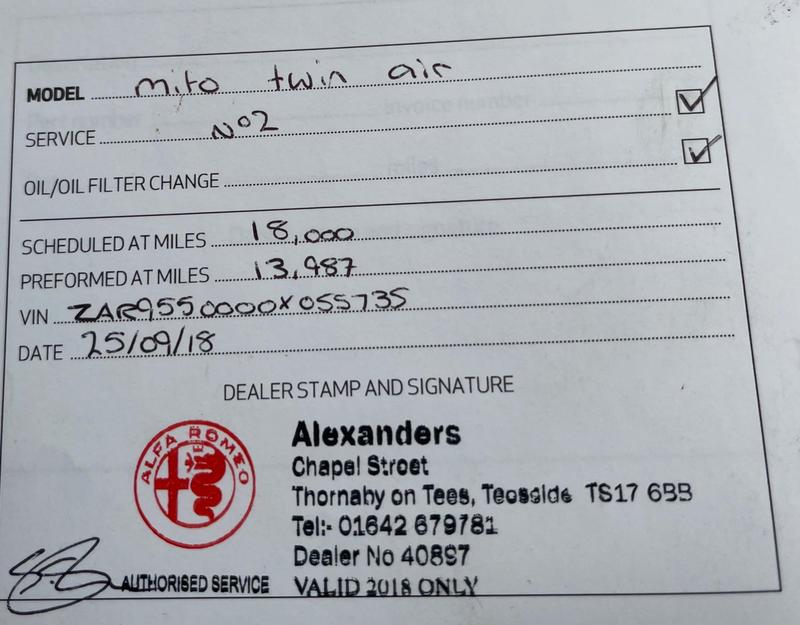 MODEL mito twin air
SERVICE No2
OIL/OIL FILTER CHANGE
SCHEDULED AT MILES 18,000
PREFORMED AT MILES 13,987
VIN ZAR9550000X055735
DATE 25/09/18
DEALER STAMP AND SIGNATURE
ALFA ROMEO
Alexanders
Chapel Street
Thornaby on Tees, Teesside TS17 6BB
Tel:- 01642 679781
Dealer No 40897
AUTHORISED SERVICE VALID 2018 ONLY